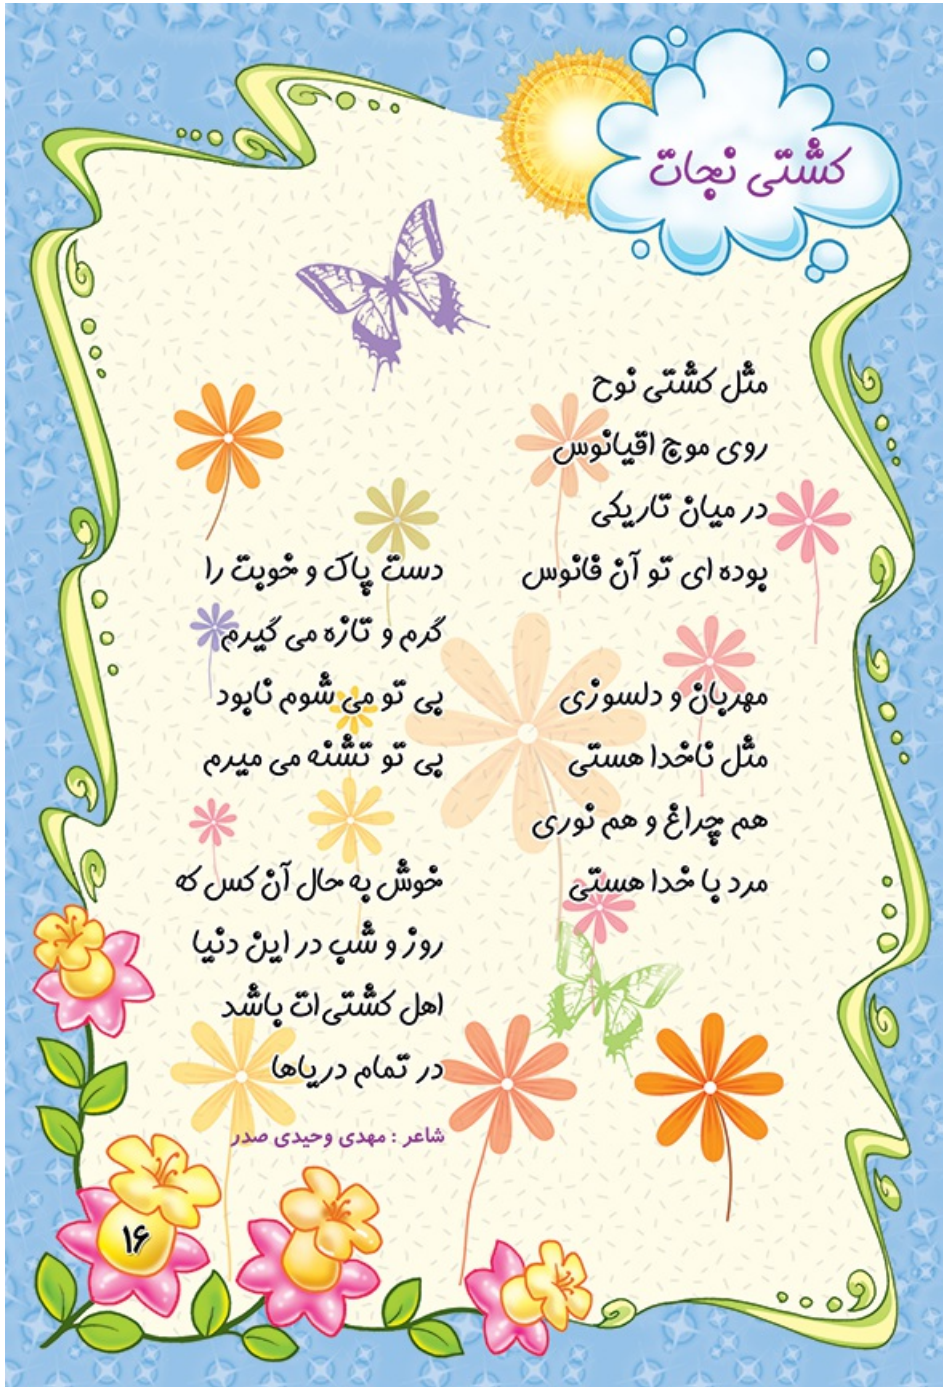 کشتی نجات
مثل کشتی نوح
روی موج اقیانوس
در میان تاریکی
بوده ای تو آن فانوس
مهربان و دلسوزی
مثل ناخدا هستی
هم چراغ و هم نوری
مرد با خدا هستی
دست پاک و خوبت را
گرم و تازه می گیرم
بی تو می شوم نابود
بی تو تشنه می میرم
خوش به حال آن کس که
روز و شب در این دنیا
اهل کشتی ات باشد
در تمام دریاها
شاعر : مهدی وحیدی صدر
۱۶